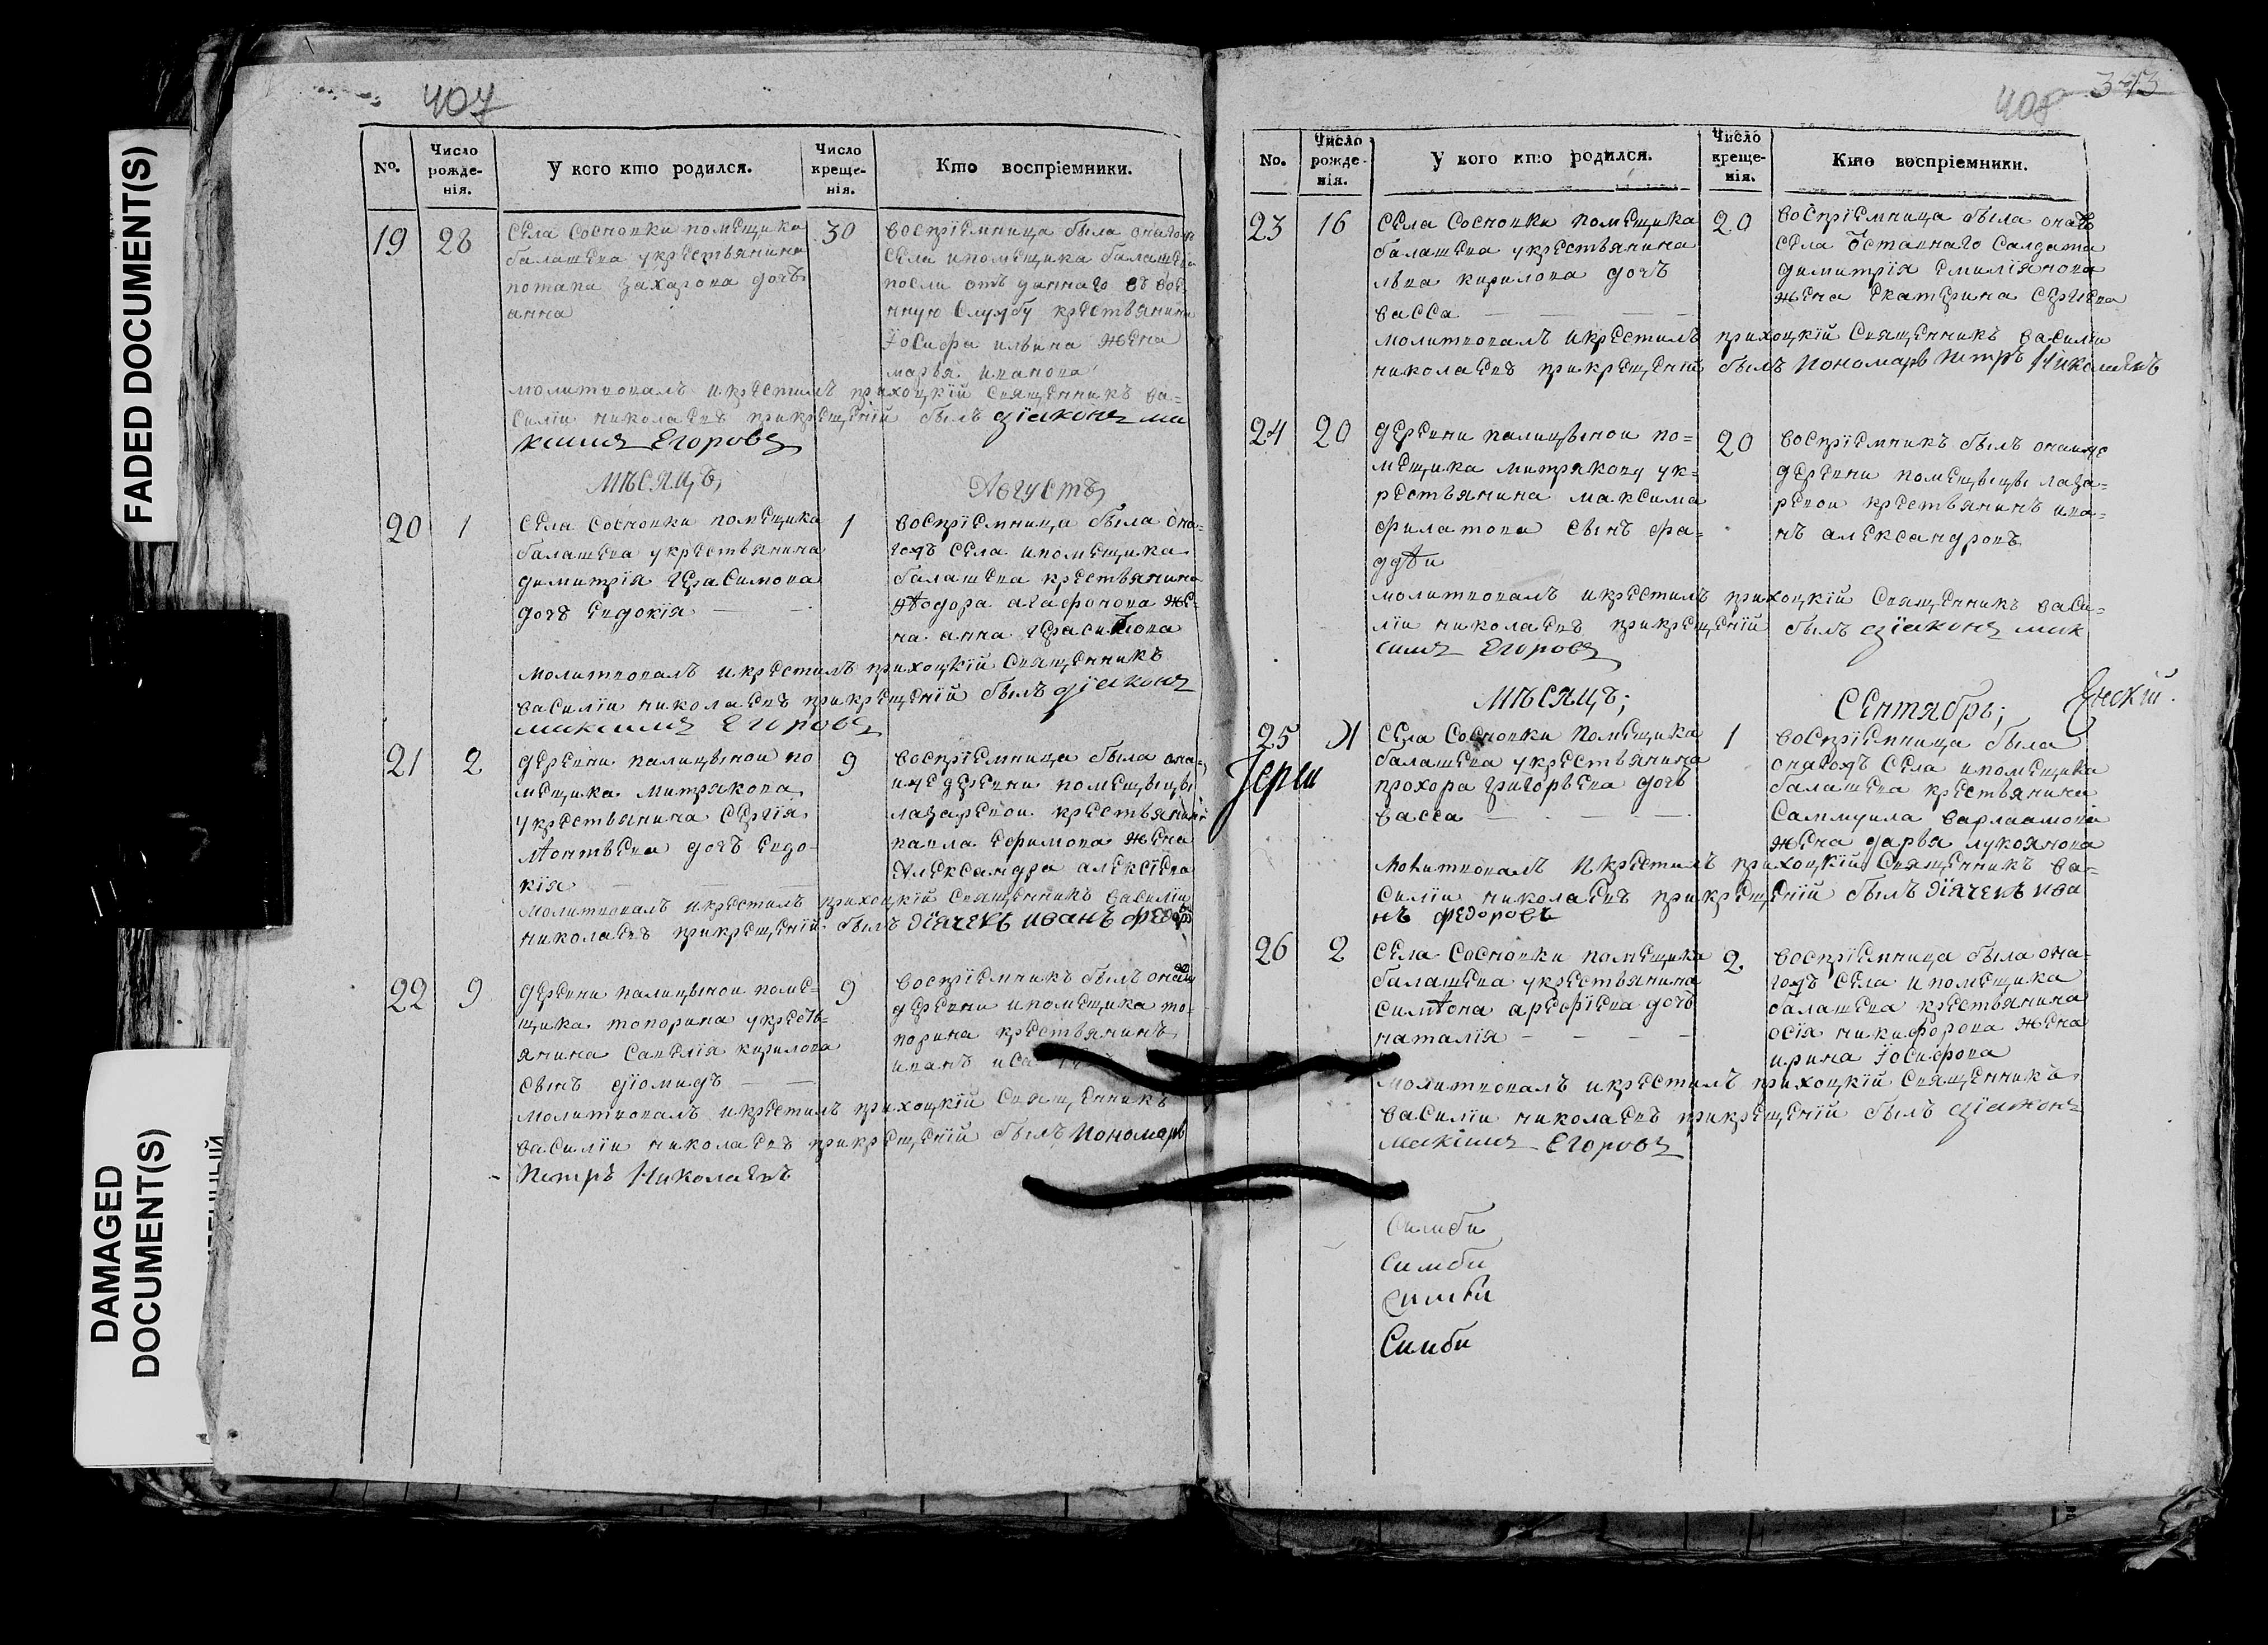 FADED DOCUMENT(S)
DAMAGED
DOCUMENT(S)
407
No.
Число
рожде-
нія.
У кого кто родился.
Число
креще-
нія.
Кто воспріемники.
19 28
Села Сосновки помещика
балашева укрестьянина
потапа Захарова дочь
анна
30
воспріемница была онагожъ
Села ипомещика балашева
посли отъ даннаго въ вое
нную Службу крестьянина
Іосифа ильина жена
марья иванова
молитвовалъ икрестилъ прихоцкій Священникъ ва=
силіи николаевъ прикрещеніи былъ діаконъ ма
ксимъ Егоровъ
Мѣсяцъ, Августъ,
20 1
Села Сосновки помещика
балашева укрестьянина
димитрія герасимова
дочь евдокія
1
воспріемница была она=
гожъ Села ипомещика
балашева крестьянина
ѳедора агафонова же=
на анна герасимова
молитвовалъ икрестилъ прихоцкій Священникъ
василіи николаевъ прикрещеніи былъ діаконъ
максимъ Егоровъ
21 2
деревни палицыной по
мещика митрякова
укрестьянина Сергія
леонтьева дочь евдо-
кія
9
воспріемница была она
иже деревни помещицы
лазаревой крестьянина
павла ефимова жена
Александра алексіева
молитвовалъ икрестилъ прихоцкій Священникъ василіи
николаевъ прикрещеніи былъ діячекъ иванъ федоровъ
22 9
деревни палицыной поме=
щика топорина укресть=
янина Савелія кирилова
сынъ діомидъ
9
воспріемникъ былъ онаи
деревни ипомещика то=
порина крестьянинъ
иванъ
молитвовалъ икрестилъ прихоцкій Священникъ
василіи николаевъ прикрещеніи былъ пономарь
Петръ Николаевъ
408 343
No.
Число
рожде-
нія.
У кого кто родился.
Число
креще-
нія.
Кто воспріемники.
23 16
Села Сосновки помещика
балашева укрестьянина
льва кирилова дочь
васса
20
воспріемница была онагожъ
села отставнаго Салдата
димитрія емиліянова
жена екатерина Сергіева
молитвовалъ икрестилъ прихоцкій Священникъ василіи
николаевъ прикрещеніи былъ пономарь петръ Николаевъ
24 20
деревни палицыной по=
мещика митрякову ук=
рестьянина максима
филатова сынъ фа=
ддѣи
20
воспріемникъ былъ онаиже
деревни помещицы лаза=
ревой крестьянинъ ива=
нъ александровъ
молитвовалъ икрестилъ прихоцкій Священникъ васи=
ліи николаевъ прикрещеніи былъ діаконъ мак
симъ Егоровъ
Мѣсяцъ; Сентябрь;
25 1
Села Сосновки помещика
балашева укрестьянина
прохора григорьева дочь
васса
1
воспріемница была
онагожъ Села ипомещика
балашева крестьянина
Саммуила варлаамова
жена дарья лукоянова
молитвовалъ икрестилъ прихоцкій Священникъ ва=
силіи николаевъ прикрещеніи былъ діячекъ ива
нъ федоровъ
26 2
Села Сосновки помещика
балашева укрестьянина
симеона арефіева дочь
наталія
2
воспріемница была она=
гожъ Села ипомещика
балашева крестьянина
осія никифорова жена
ирина Іосифова
молитвовалъ икрестилъ прихоцкій Священникъ
василіи николаевъ прикрещеніи былъ діаконъ
максимъ Егоровъ
Симби
Симби
Симби
Симби